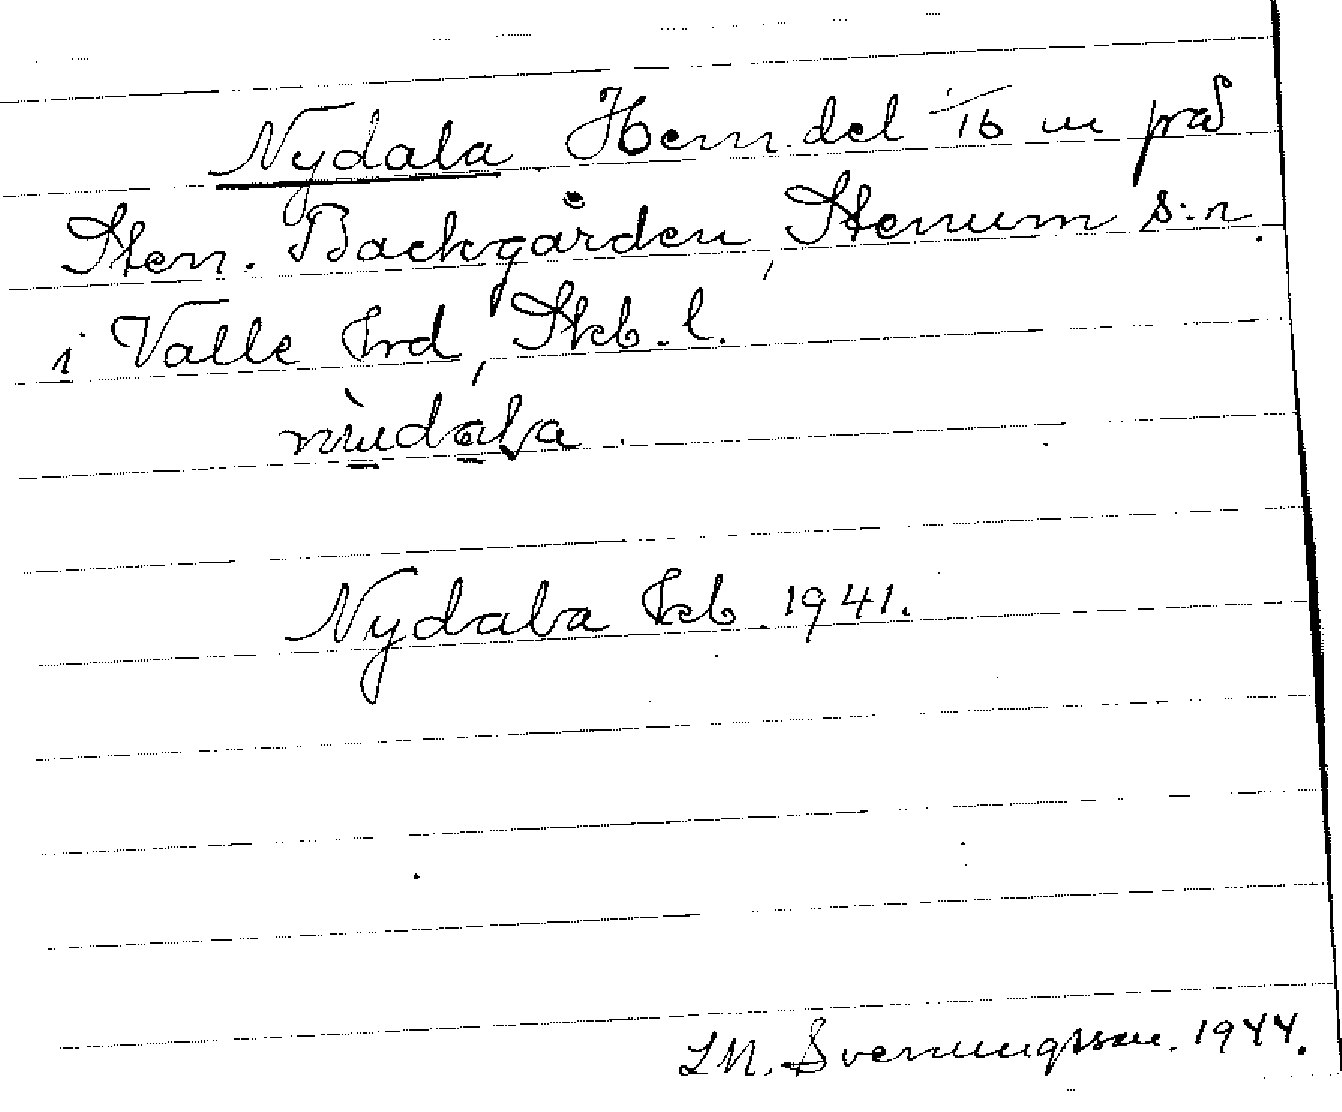 Nydala Hem.del 1/16 m på
Sten. Backgården, Stenum s:n.
i Valle hrd, Skb. l.
Nydala kb. 1941.
L M. Svenungsson. 1944.